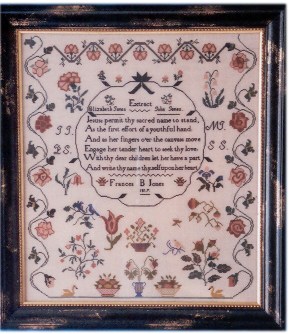 Extract
Elizabeth Jones John Jones
Jesus permit thy sacred name to stand,
As the first effort of a youthful hand.
And as her fingers over the canvass move
Engage her tender heart to seek thy love:
With thy dear children let her have a part
And write thy name thyself upon her heart
Frances B Jones